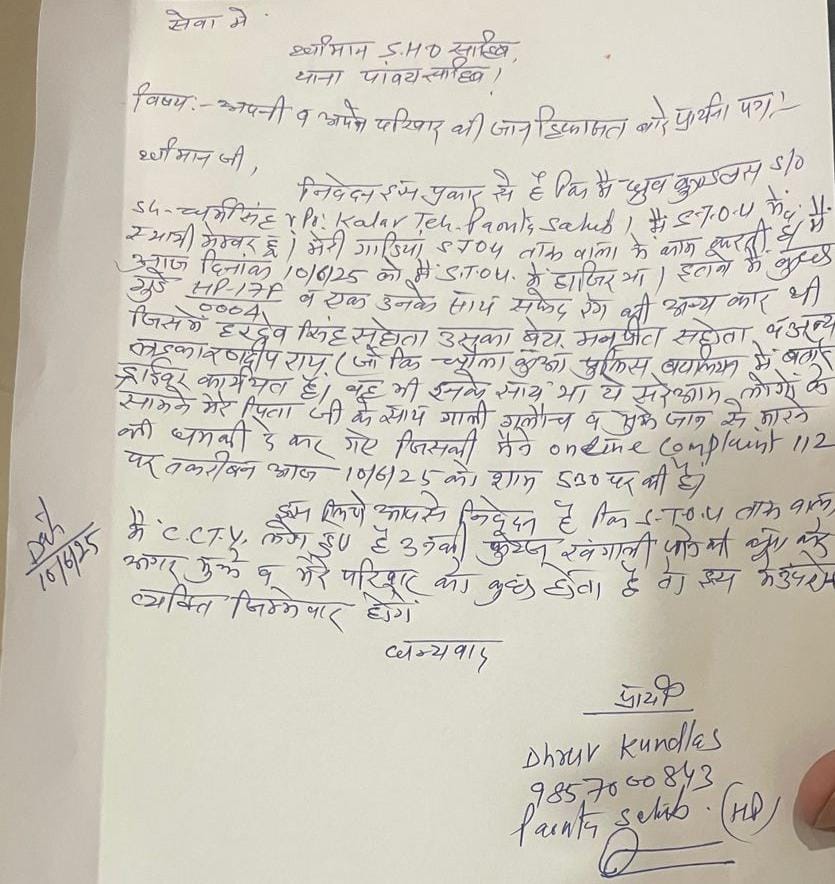 सेवा में
श्रीमान S.H.O साहिब,
थाना पांवटा साहिब।
विषय:- अपनी व अपने परिवार की जान हिफाजत बारे प्रार्थना पत्र।-
श्रीमान जी,
निवेदन इस प्रकार से है कि मैं ध्रुव कुण्डलस S/o
Sh- धर्म सिंह r/o Kalar Teh. Paonta Sahib। मैं S.T.O.U में
स्थायी मेम्बर हूँ। मेरी गाडिया S.T.O.U वाला में काम करती है। मैं
आज दिनांक 10/6/25 को मैं S.T.O.U. में हाजिर था। इतने में कुछ
गुंडे HP-17F 0004 व एक उनके साथ सफेद रंग की अन्य कार थी
जिसमें हरदेव सिंह सहोता उसका बेटा मनप्रीत सहोता व अन्य
राय (जो कि पुलिस में बतौर
ड्राइवर कार्यरत है। वह भी इनके साथ था ये सरेआम लोगों के
सामने मेरे पिता जी के साथ गाली गलौच व मुझे जान से मारने
की धमकी दे कर गए जिसकी मैंने online complaint 112
पर तकरीबन आज 10/6/25 को शाम 530 पर की है।
इस लिये आपसे निवेदन है कि S.T.O.U
में C.C.T.V. लगे हुए है उनकी फुटेज खंगाली
अगर मुझे व मेरे परिवार को कुछ होता है तो इस में उपरोक्त
व्यक्ति जिम्मेवार होंगे
धन्यवाद
प्रार्थी
Dhruv Kundlas
9857000843
Paonta Sahib. (HP)
10/6/25